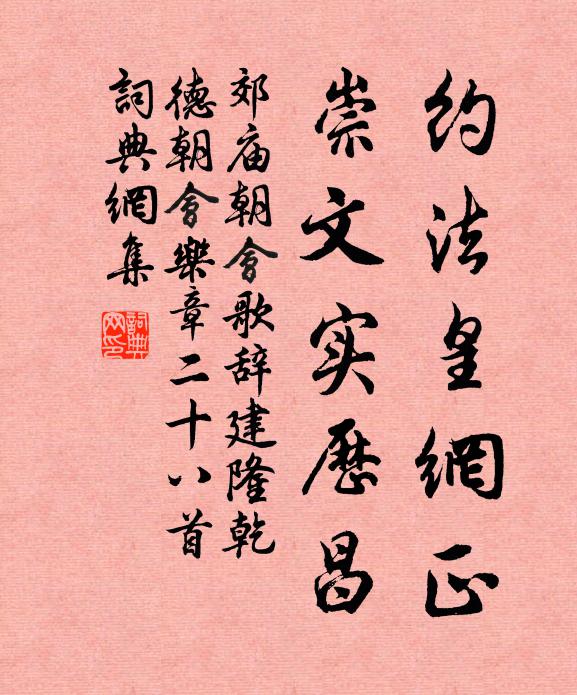 约法皇網正
崇文实歷昌
郊庙朝會歌辞建隆乾
德朝會樂章二十八首
詞典網集
詞典
网印